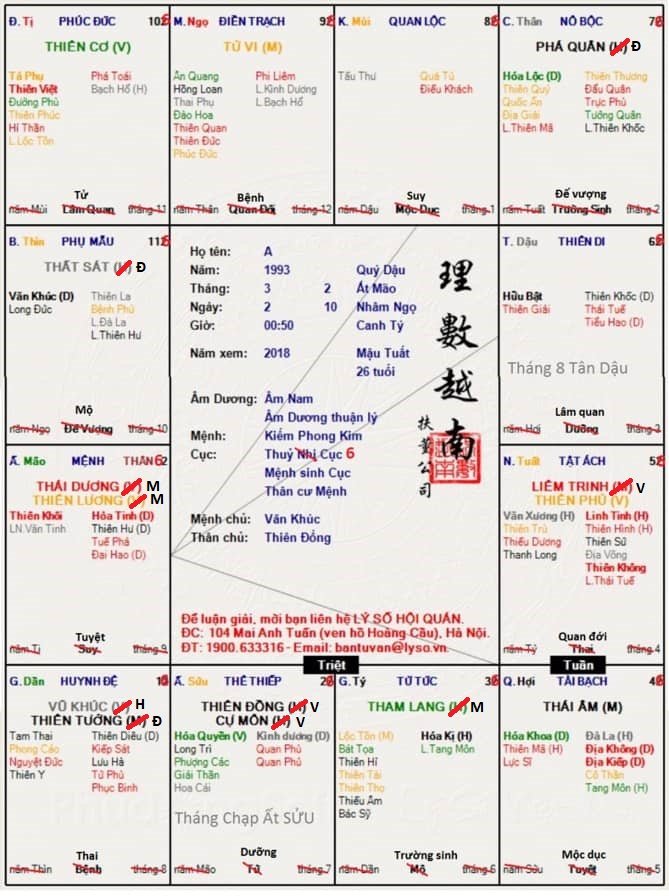 Đ. Tị PHÚC ĐỨC 102
THIÊN CƠ (V)
Tả Phụ Phá Toái
Thiên Việt Bạch Hổ (H)
Đường Phù
Thiên Phúc
Hỉ Thần
L.Lộc Tồn
Tử
năm Mùi Lâm Quan tháng 11
M. Ngọ ĐIỀN TRẠCH 92
TỬ VI (M)
Ân Quang Phi Liêm
Hồng Loan L.Kình Dương
Thai Phụ L.Bạch Hổ
Đào Hoa
Thiên Quan
Thiên Đức
Phúc Đức
Bệnh
năm Thân Quan Đới tháng 12
K. Mùi QUAN LỘC 82
Tấu Thư Quả Tú
Điếu Khách
Suy
năm Dậu Mộc Dục tháng 1
C. Thân NÔ BỘC 72
PHÁ QUÂN (H) Đ
Hóa Lộc (D) Thiên Thương
Thiên Quý Đẩu Quân
Quốc Ấn Trực Phù
Địa Giải Tướng Quân
L.Thiên Mã L.Thiên Khốc
Đế vượng
năm Tuất Trường Sinh tháng 2
B. Thìn PHỤ MẪU 112
THẤT SÁT (H) Đ
Văn Khúc (D) Thiên La
Long Đức Bệnh Phù
L.Đà La
L.Thiên Hư
Mộ
năm Ngọ Đế Vượng tháng 10
Họ tên: A
Năm: 1993 Quý Dậu
Tháng: 3 2 Ất Mão
Ngày: 2 10 Nhâm Ngọ
Giờ: 00:50 Canh Tý
Năm xem: 2018 Mậu Tuất
26 tuổi
Âm Dương: Âm Nam
Âm Dương thuận lý
Mệnh: Kiếm Phong Kim
Cục: Thuỷ Nhị Cục 6
Mệnh sinh Cục
Thân cư Mệnh
Mệnh chủ: Văn Khúc
Thân chủ: Thiên Đồng
理數越南
扶董公司
Để luận giải, mời bạn liên hệ LÝ SỐ HỘI QUÁN.
ĐC: 104 Mai Anh Tuấn (ven hồ Hoàng Cầu), Hà Nội.
ĐT: 1900.633316 - Email: bantuvan@lyso.vn.
T. Dậu THIÊN DI 62
Hữu Bật Thiên Khốc (D)
Thiên Giải Thái Tuế
Tiểu Hao (D)
Tháng 8 Tân Dậu
Lâm quan
năm Hợi Dưỡng tháng 3
Ấ. Mão MỆNH THÂN 6 2
THÁI DƯƠNG M
THIÊN LƯƠNG M
Thiên Khôi Hỏa Tinh (D)
LN.Văn Tinh Thiên Hư (D)
Tuế Phá
Đại Hao (D)
Tuyệt
năm Tị Suy tháng 9
N. Tuất TẬT ÁCH 52
LIÊM TRINH (M) V
THIÊN PHỦ (V)
Văn Xương (H) Linh Tinh (H)
Thiên Trù Thiên Hình (H)
Thiếu Dương Thiên Sứ
Thanh Long Địa Võng
Thiên Không
L.Thái Tuế
Quan đới
năm Tý Thai tháng 4
Triệt
Tuần
G. Dần HUYNH ĐỆ 12
VŨ KHÚC (V) H
THIÊN TƯỚNG (M) Đ
Tam Thai Thiên Diêu (D)
Phong Cáo Kiếp Sát
Nguyệt Đức Lưu Hà
Thiên Y Tử Phù
Phục Binh
Thai
năm Thìn Bệnh tháng 8
Ấ. Sửu THÊ THIẾP 22
THIÊN ĐỒNG (H) V
CỰ MÔN (H) V
Hóa Quyền (V) Kình dương (D)
Long Trì Quan Phù
Phượng Các Quan Phủ
Giải Thần
Hoa Cái
Tháng Chạp Ất SỬU
Dưỡng
năm Mão Tử tháng 7
G. Tý TỬ TỨC 32
THAM LANG (H) M
Lộc Tồn (M) Hóa Kị (H)
Bát Tọa L.Tang Môn
Thiên Hỉ
Thiên Tài
Thiên Thọ
Thiếu Âm
Bác Sỹ
Trường sinh
năm Dần Mộ tháng 6
Q. Hợi TÀI BẠCH 42
THÁI ÂM (M)
Hóa Khoa (D) Đà La (H)
Thiên Mã (H) Địa Không (D)
Lực Sĩ Địa Kiếp (D)
Cô Thần
Tang Môn (H)
Mộc dục
năm Sửu Tuyệt tháng 5